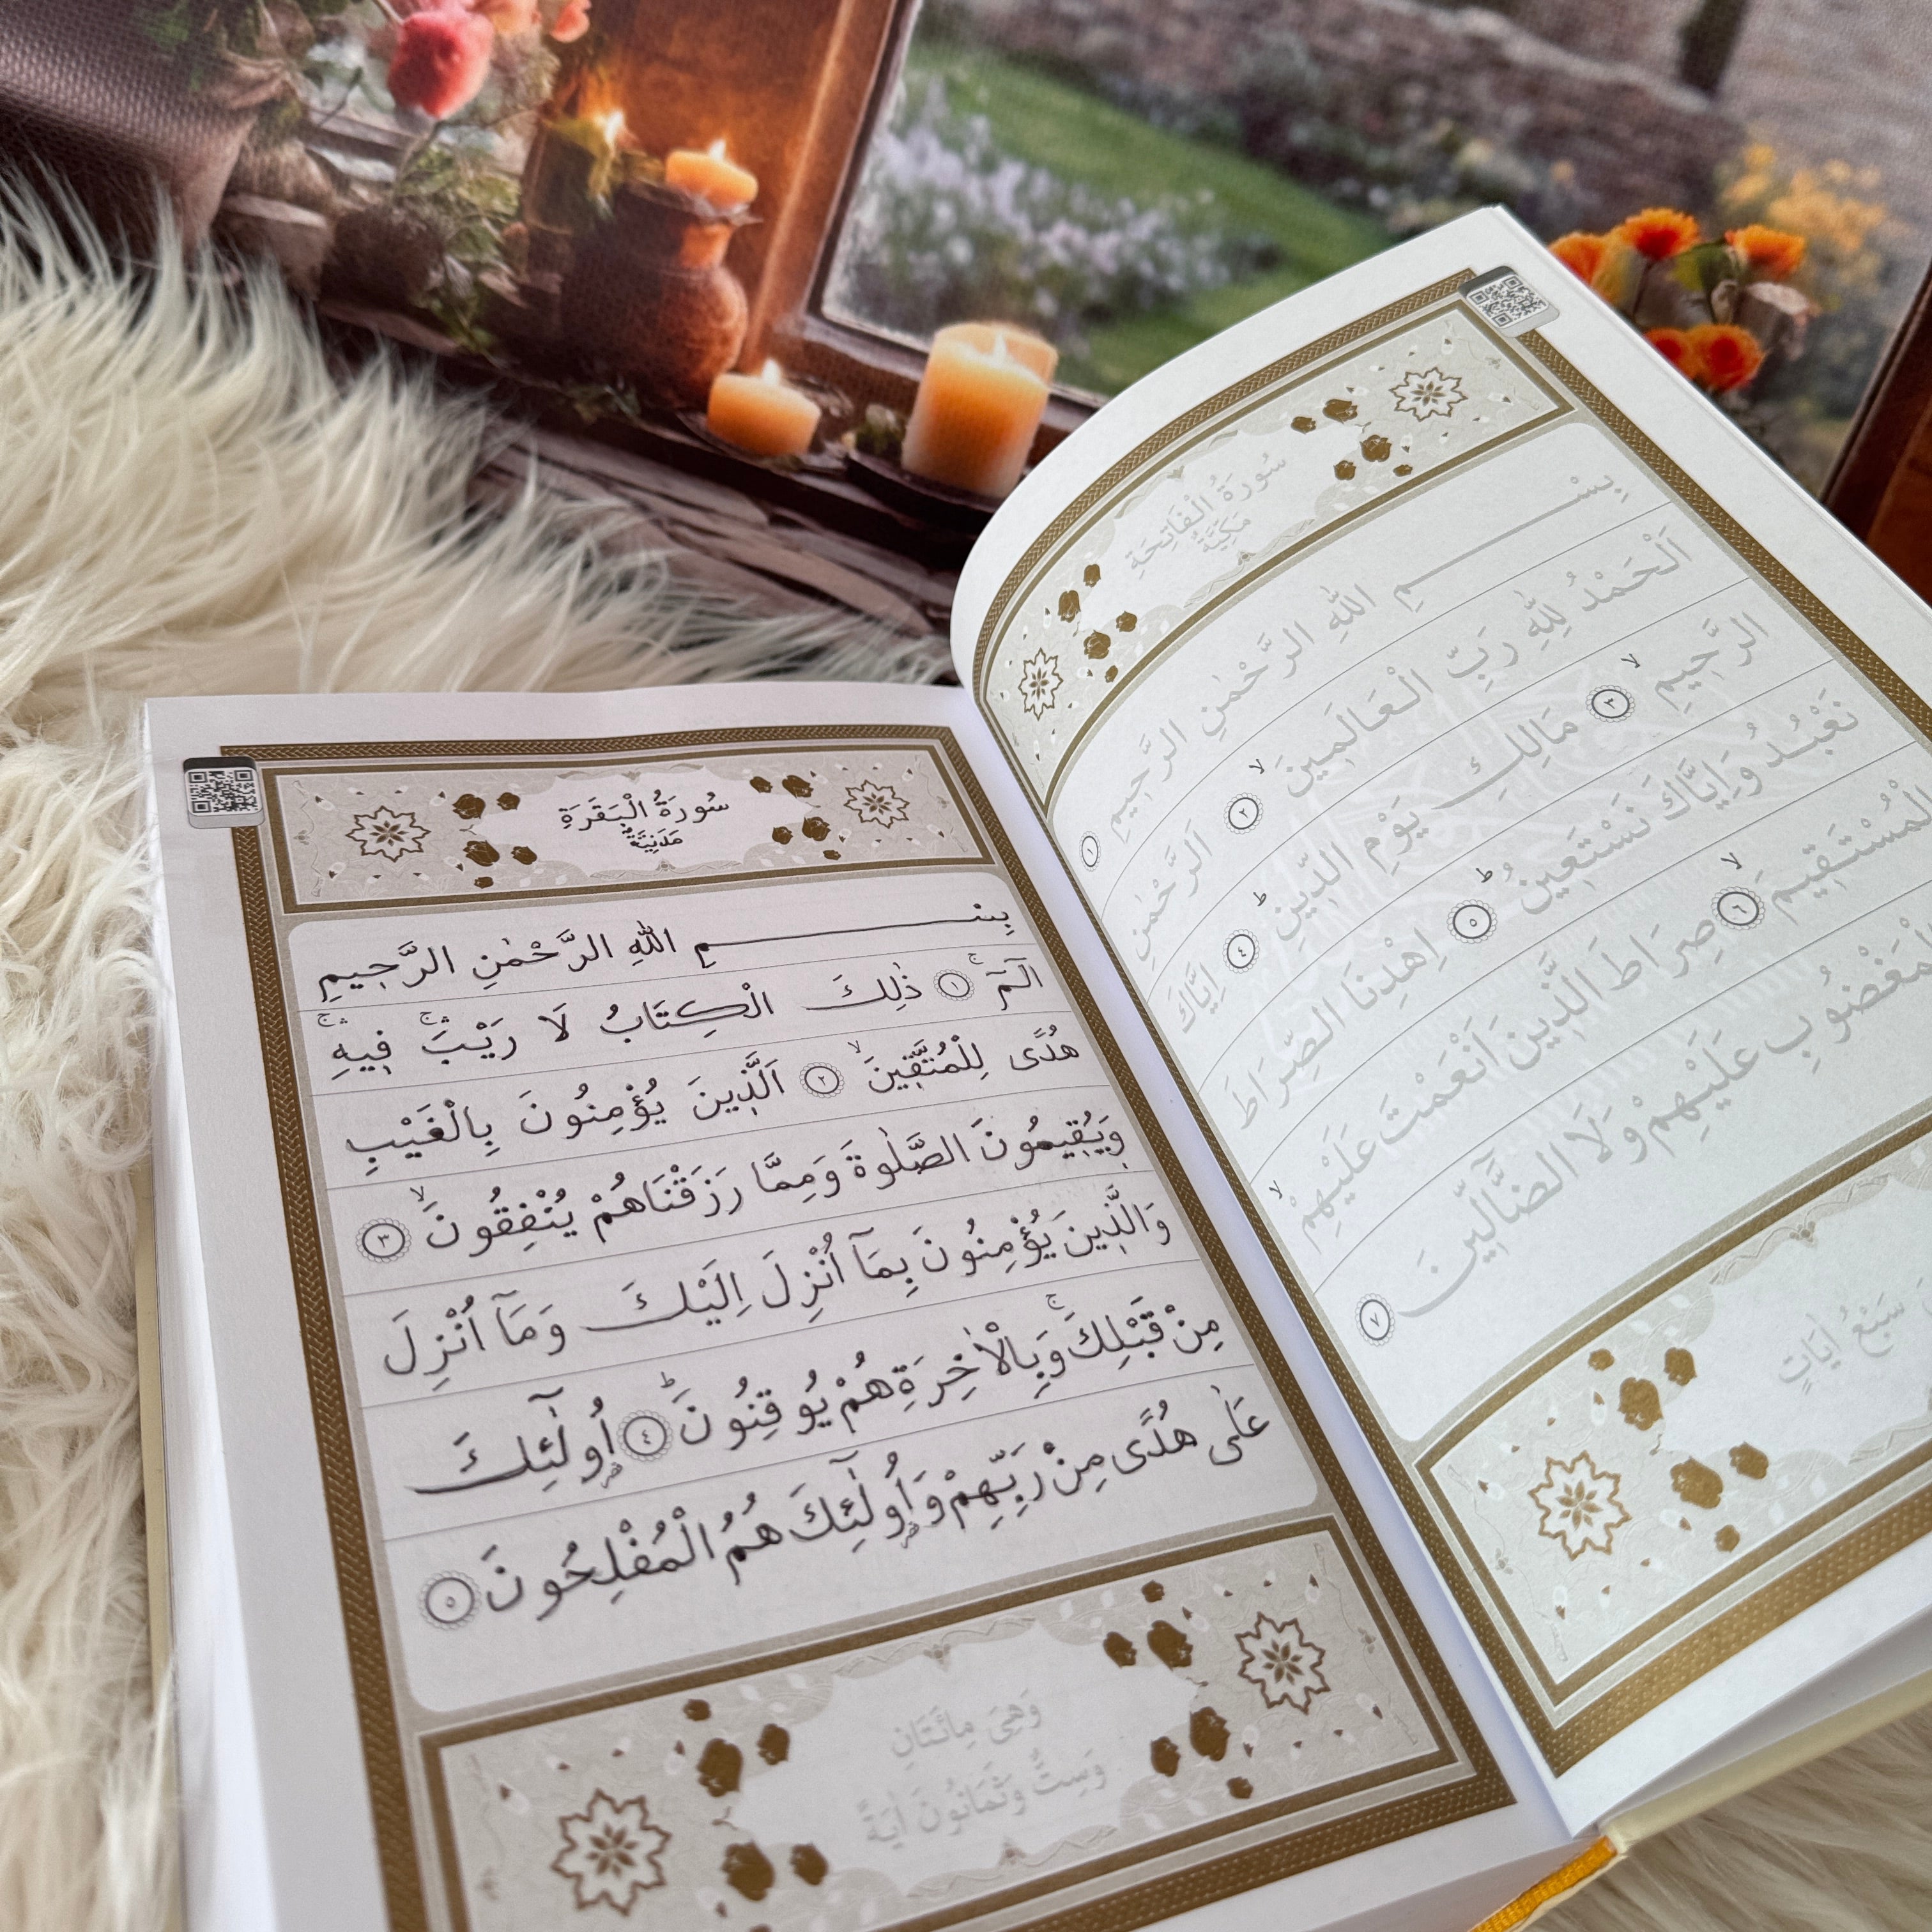 سُورَةُ الْفَاتِحَةِ
مَكِّيَّةٌ
بِسْمِ اللهِ الرَّحْمٰنِ الرَّحِيمِ ١
اَلْحَمْدُ لِلّٰهِ رَبِّ الْعَالَمِينَ ۙ ٢ اَلرَّحْمٰنِ
الرَّحِيمِ ۙ ٣ مَالِكِ يَوْمِ الدِّينِ ۜ ٤ اِيَّاكَ
نَعْبُدُ وَاِيَّاكَ نَسْتَعِينُ ۜ ٥ اِهْدِنَا الصِّرَاطَ
الْمُسْتَقِيمَ ۙ ٦ صِرَاطَ الَّذِينَ اَنْعَمْتَ عَلَيْهِمْ ۙ
الْمَغْضُوبِ عَلَيْهِمْ وَلَا الضَّٓالِّينَ ٧
سَبْعُ اٰيَاتٍ
سُورَةُ الْبَقَرَةِ
مَدَنِيَّةٌ
بِسْمِ اللهِ الرَّحْمٰنِ الرَّحِيمِ
الٓمٓ ۚ ١ ذٰلِكَ الْكِتَابُ لَا رَيْبَ ۛۚ فِيهِ ۛۚ
هُدًى لِلْمُتَّقِينَ ۙ ٢ اَلَّذِينَ يُؤْمِنُونَ بِالْغَيْبِ
وَيُقِيمُونَ الصَّلٰوةَ وَمِمَّا رَزَقْنَاهُمْ يُنْفِقُونَ ۙ ٣
وَالَّذِينَ يُؤْمِنُونَ بِمَٓا اُنْزِلَ اِلَيْكَ وَمَٓا اُنْزِلَ
مِنْ قَبْلِكَ ۚ وَبِالْاٰخِرَةِ هُمْ يُوقِنُونَ ۜ ٤ اُو۬لٰٓئِكَ
عَلٰى هُدًى مِنْ رَبِّهِمْ وَاُو۬لٰٓئِكَ هُمُ الْمُفْلِحُونَ ٥
وَهِىَ مِائَتَانِ
وَسِتٌّ وَثَمَانُونَ اٰيَةً